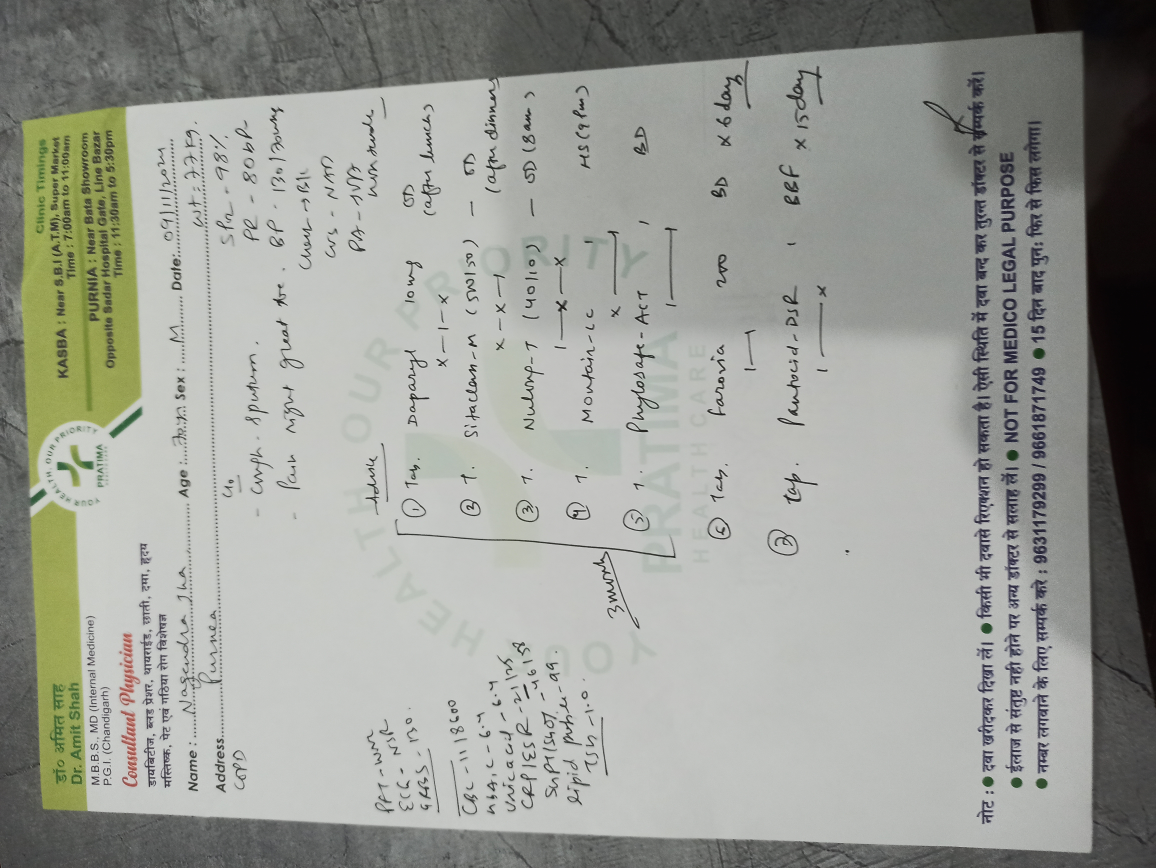 डॉ० अमित साह
Dr. Amit Shah
M.B.B.S., MD (Internal Medicine)
P.G.I. (Chandigarh)
Consultant Physician
डायबिटीज, ब्लड प्रेशर, थायराईड, छाती, दमा, हृदय
मस्तिष्क, पेट एवं गठिया रोग विशेषज्ञ
YOUR HEALTH, OUR PRIORITY
PRATIMA
HEALTH CARE
Clinic Timings
KASBA : Near S.B.I (A.T.M), Super Market
Time : 7:00am to 11:00am
PURNIA : Near Bata Showroom
Opposite Sadar Hospital Gate, Line Bazar
Time : 11:30am to 5:30pm
Name : Nagendra Jha Age : Sex : M Date: 09/11/2024
Address Purnea Wt: 77 kg.
COPD
C/o
- Cough. Sputum.
- Pain right great toe.
SPO2 - 98%
PR - 80 bpm
BP - 130/70
Chest → B/L
CVS - NAD
PA - Soft
ECG - NSR
GRBS - 130.
CBC - 11.1/8600
HbA1C - 6.4
Uric acid - 6.4
CRP/ESR - 21/25
SGPT/SGOT - 46/58
lipid profile - 99.
TSH - 1.0.
Advice
① Tab. Daparyl 10mg OD
x-1-x (after lunch)
② T. Sitaclan-M (50/50) - OD
x-x-1 (after dinner)
③ T. (40/10) - OD (8am)
1-x-x
④ T. Montair-LC 1 HS (9pm)
x
⑤ T. Phylosafe-ACT 1 BD
1
3 months
⑥ Tab. Farovia 200 BD x 6 day
1-1
⑦ Tab. Pantocid-DSR 1 BBF x 15 day
1-x
YOUR HEALTH OUR PRIORITY
PRATIMA
HEALTH CARE
नोट : ● दवा खरीदकर दिखा लें। ● किसी भी दवासे रिएक्शन हो सकता है। ऐसी स्थिति में दवा बन्द कर तुरन्त डॉक्टर से सम्पर्क करें।
● ईलाज से संतुष्ट नही होने पर अन्य डॉक्टर से सलाह लें। ● NOT FOR MEDICO LEGAL PURPOSE
● नम्बर लगवाने के लिए सम्पर्क करे : 9631179299 / 9661871749 ● 15 दिन बाद पुनः फिर से फिस लगेगा।